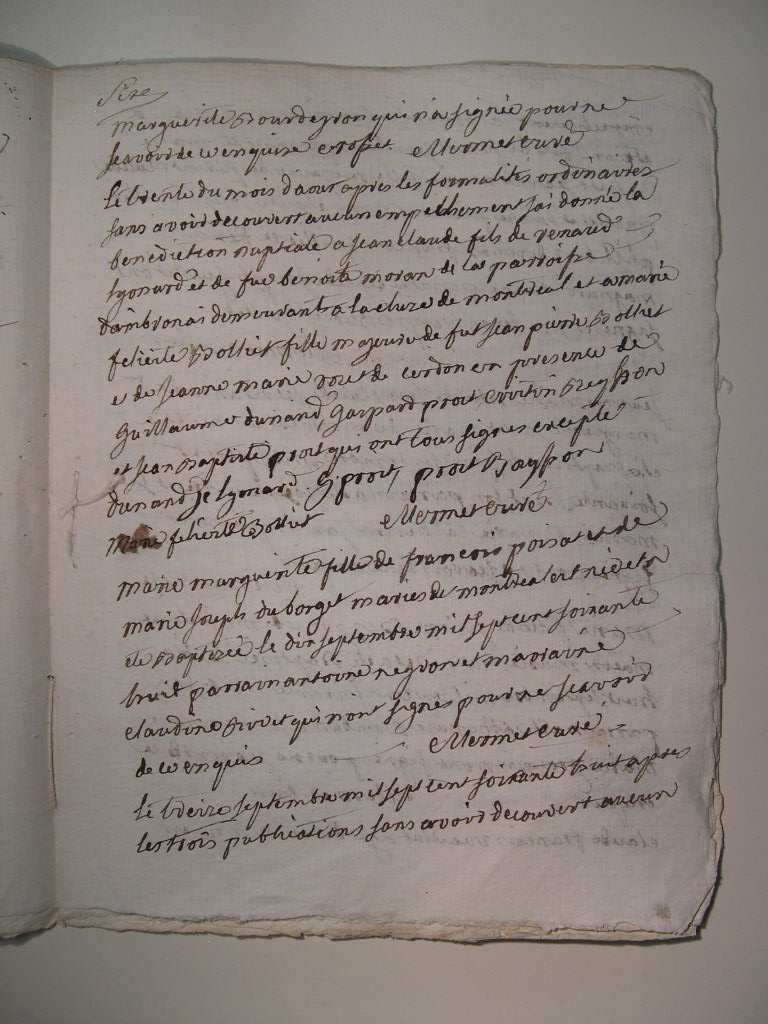 Seze
marguerite Bourdeyron qui n'a signée pour ne
scavoir de ce enquise et of et Mermet curé
le trente du mois d'aout après les formalités ordinaires
sans avoir decouvert aucun empeschement j'ai donné la
benediction nuptiale a jean claude fils de renaud
lyonard et de fue benoite moran de la parroisse
dambronai demeurant a la cluze de montreal et a marie
felicité Bolliet fille majeure de fut jean pierre Bolliet
et de jeanne marie de cerdon en presence de
Guillaume dunand, Gaspard proit et Reysson
et jean Baptiste proit qui ont tous signés excepté
dunand je lyonard. G proit, proit Bayson
marie felicité Bolliet Mermet curé
marie marguerite fille de francois poisat et de
marie joseph du borget mariés de montreal est née et a
ete Baptizée le dix septembre mil sept cent soixante
huit parrain antoine negron et marraine
claudine Rivet qui n'ont signés pour ne scavoir
de ce enquis Mermet curé
le treize septembre mil sept cent soixante huit apres
les trois publications sans avoir decouvert aucun